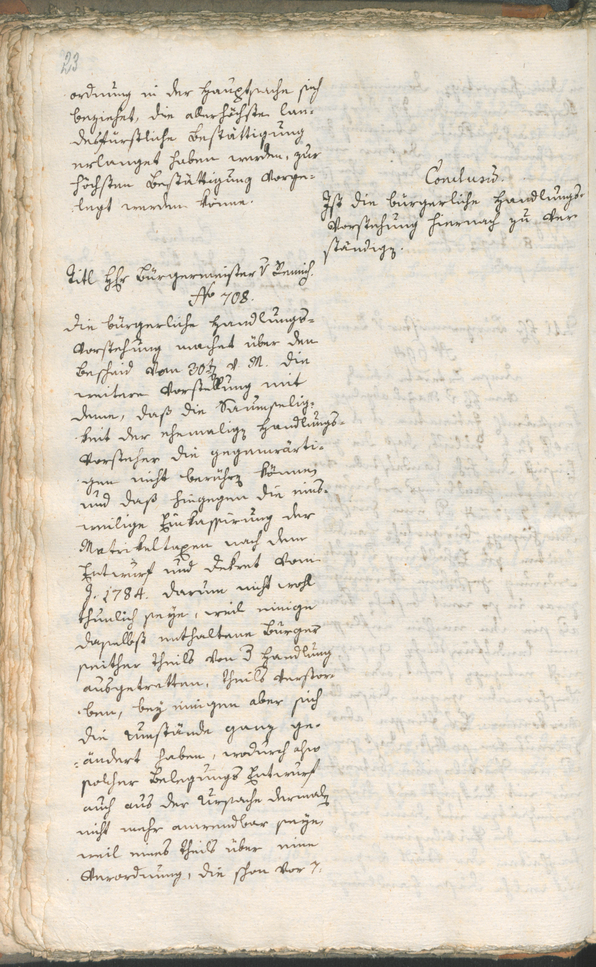 23
ordnung in der Hauptsache sich
beziehet, die allerhöchste lan-
desfürstliche Bestättigung
erlanget haben werden, zur
höchsten Bestättigung vorge-
legt werden könne.
Conclusum.
Ist die bürgerliche Handlungs-
Vorstehung hiernach zu ver-
ständigen.
Titl. Hr. Bürgermeister v.
No 708.
Die bürgerliche Handlungs-
Vorstehung machet über den
Bescheid vom 30ten v. M. die
weitere Vorstellung mit
deme, daß die Saumselig-
keit der ehemaligen Handlungs-
Vorsteher die gegenwärti-
gen nicht berühren könne,
und daß hingegen die eins-
weilige Einkassirung der
Matrikeltaxen nach dem
Entwurf und Dekret vom
J. 1784. darum nicht wohl
thunlich seye, weil einige
daselbst enthaltene Bürger
seither theils von der Handlung
ausgetretten, theils verstor-
ben, bey einigen aber sich
die Umstände ganz ge-
ändert haben, wodurch also
solcher Belegungs Entwurf
auch aus der Ursache dermalen
nicht mehr anwendbar seye,
weil eines theils über eine
Verordnung, die schon vor 7.